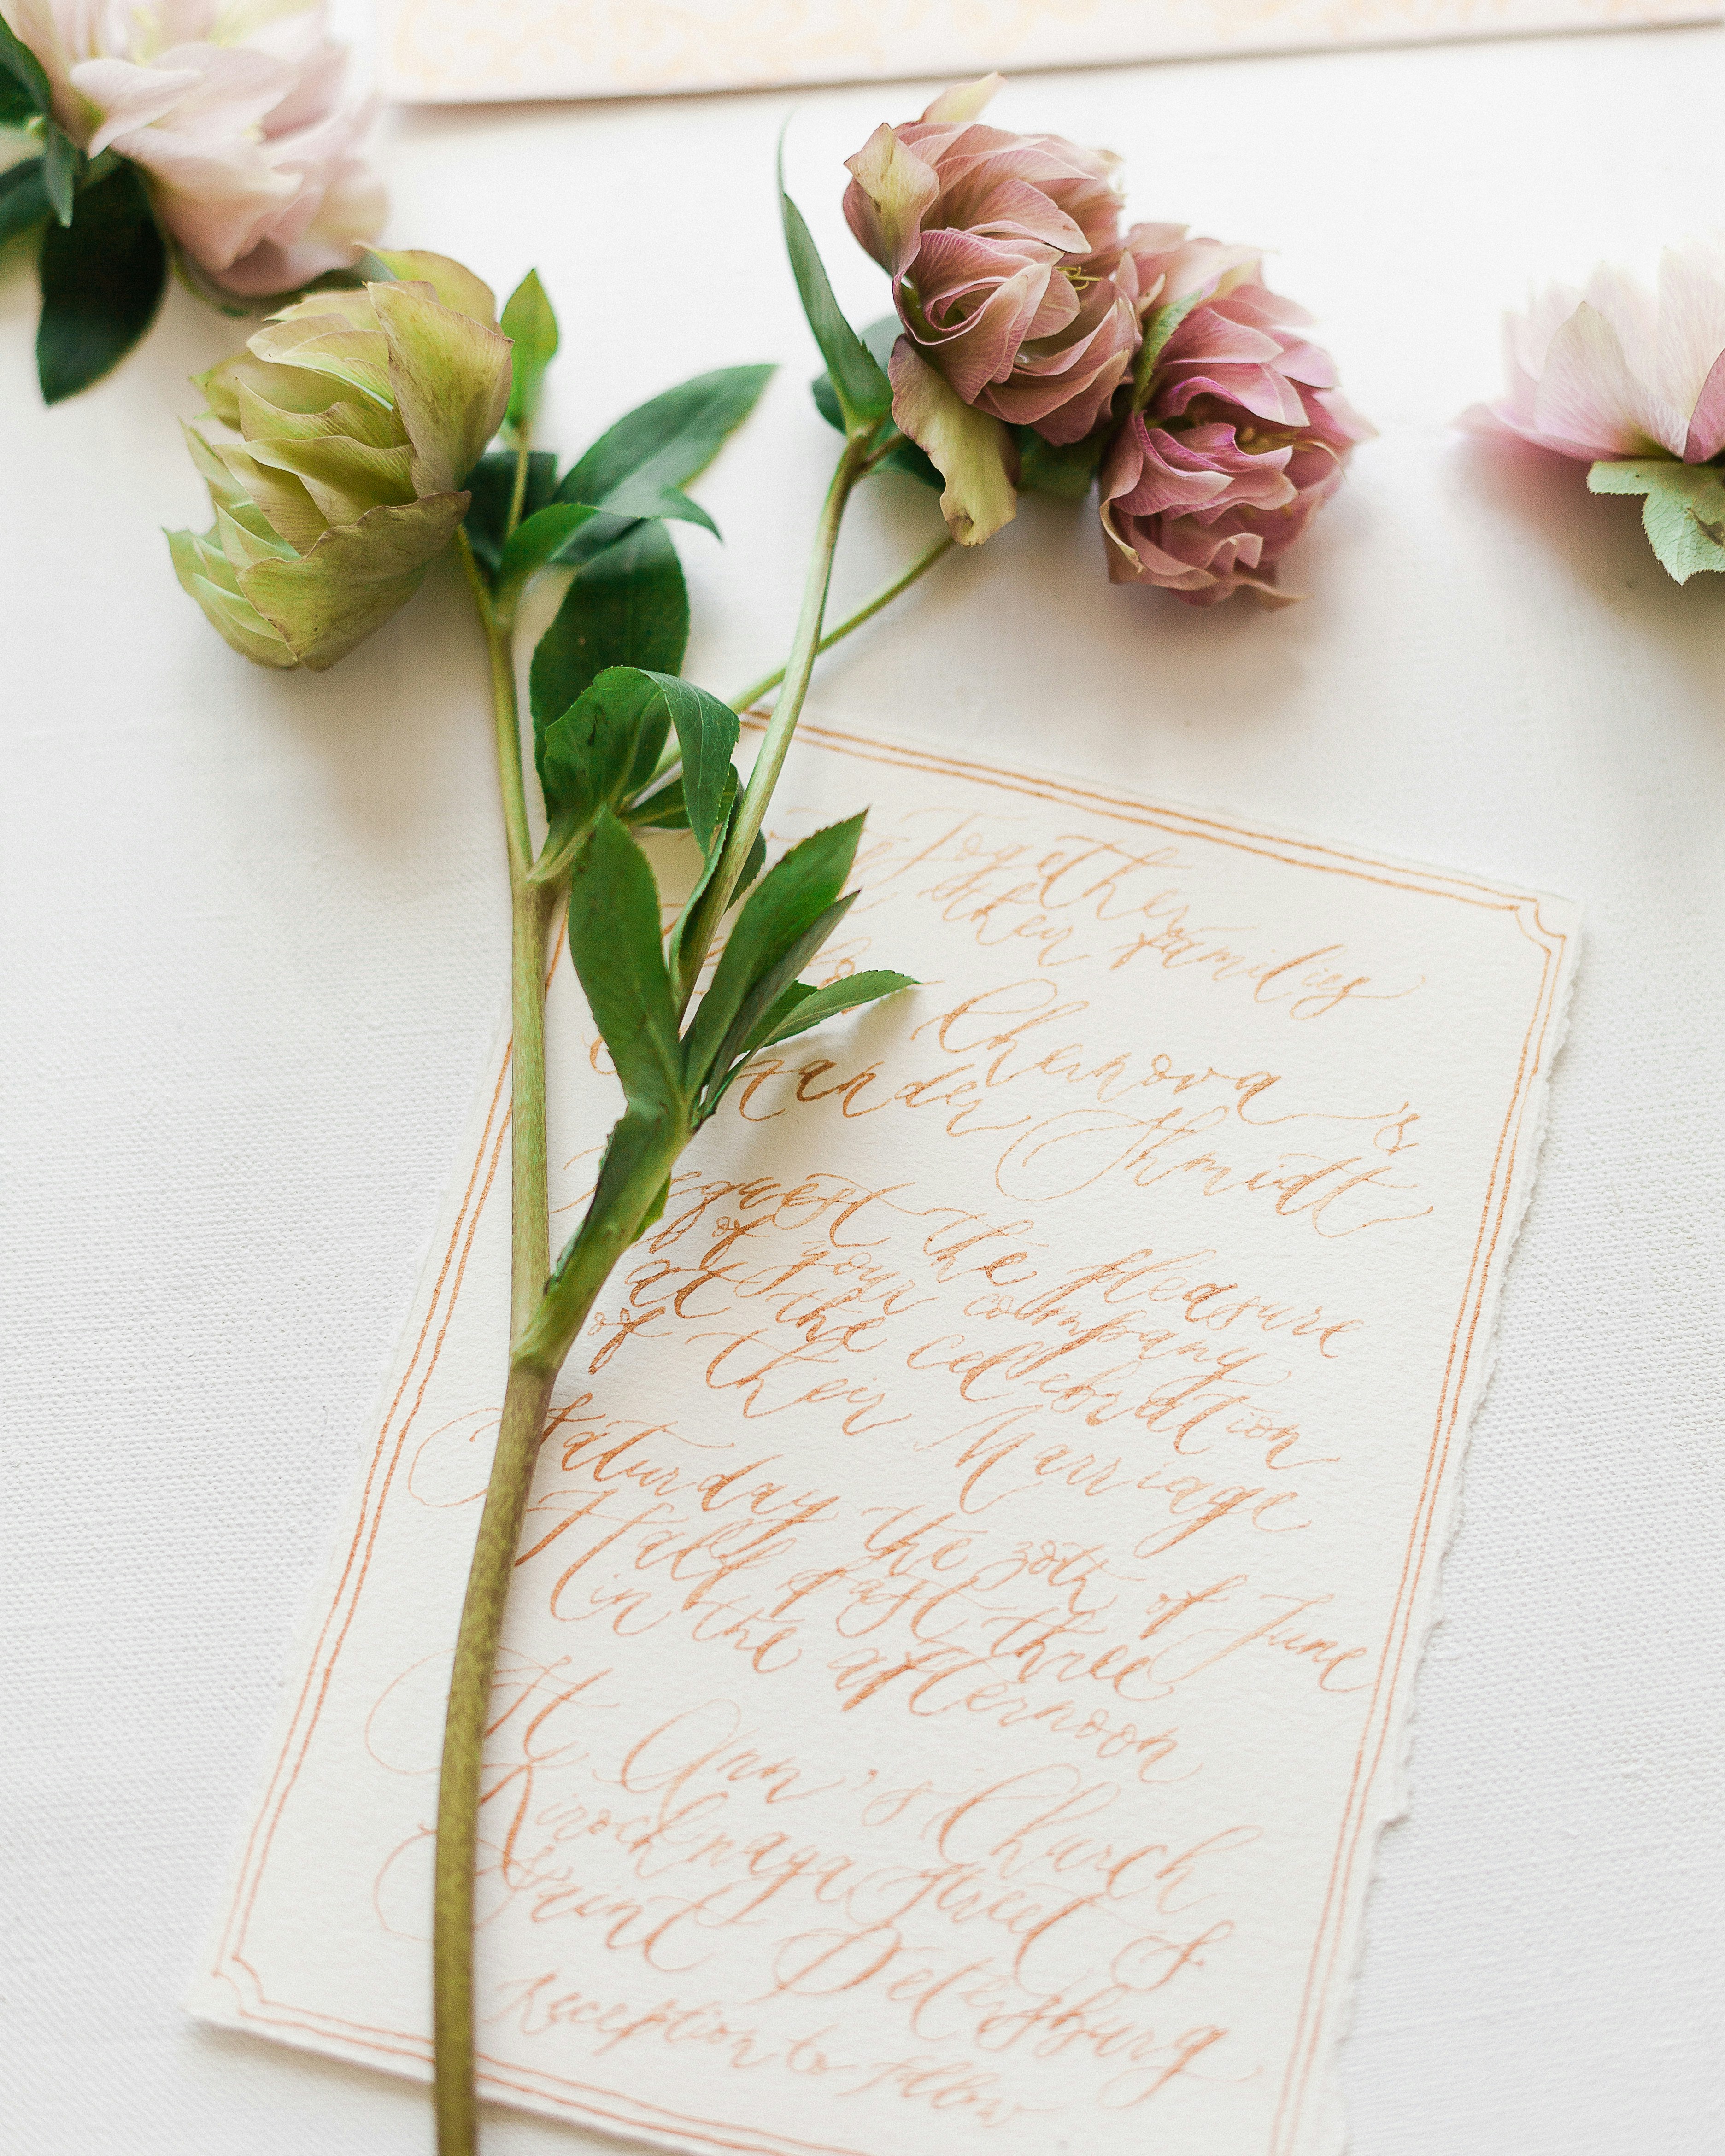 Together
their families
Chernova &
ander Shmidt
request the pleasure
of your company
at the celebration
of their Marriage
Saturday the 30th of June
Half past three
in the afternoon
St Ann's Church
Kirochnaya street 8
Saint Petersburg
Reception to follow